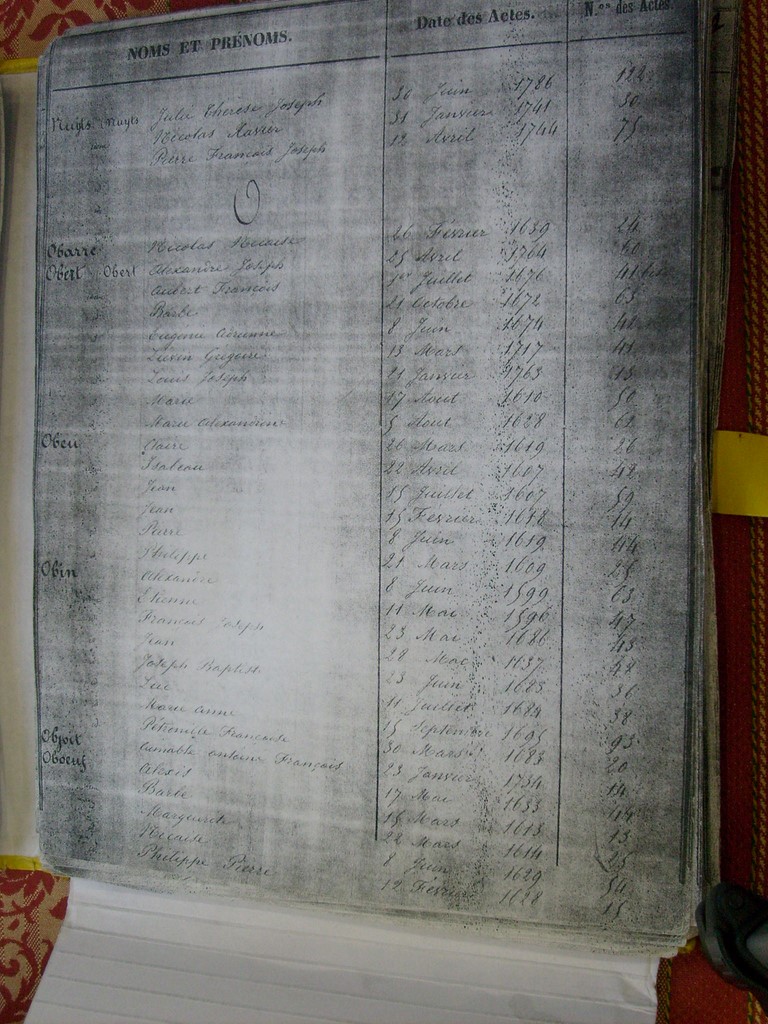 NOMS ET PRÉNOMS. Date des Actes. N.os des Actes.
Nuyts Nuyts Julie Therese Joseph 30 Juin 1786 122
Nicolas Xavier 31 Janvier 1741 30
Pierre Francois Joseph 12 Avril 1744 75
O
Obarre Nicolas Nicaise 26 Février 1639 24
Obert Obert Alexandre Joseph 25 Avril 1764 60
Aubert Francois 1er Juillet 1676 41 bis
Barbe 21 Octobre 1672 63
Eugenie Adrienne 8 Juin 1674 42
Lievin Gregoire 13 Mars 1717 41
Louis Joseph 21 Janvier 1763 13
Marie 17 Aout 1610 50
Marie Alexandrine 5 Aout 1628 62
Obeu Claire 26 Mars 1619 26
Isabeau 22 Avril 1607 48
Jean 15 Juillet 1607 59
Jean 15 Fevrier 1618 14
Pierre 8 Juin 1619 44
Philippe 21 Mars 1609 25
Obin Alexandre 8 Juin 1599 63
Etienne 11 Mai 1596 47
Francois Joseph 23 Mai 1686 43
Jean 28 Mai 1737 48
Joseph Baptiste 23 Juin 1683 36
Luc 11 Juillet 1684 38
Marie Anne 15 Septembre 1695 93
Petronille Francoise 30 Mars 1683 20
Objoit Aimable Antoine François 23 Janvier 1734 14
Oboeuf Alexis 17 Mai 1633 44
Barbe 15 Mars 1613 13
Marguerite 22 Mars 1614 25
Nicaise 8 Juin 1629 54
Philippe Pierre 12 Février 1628 15